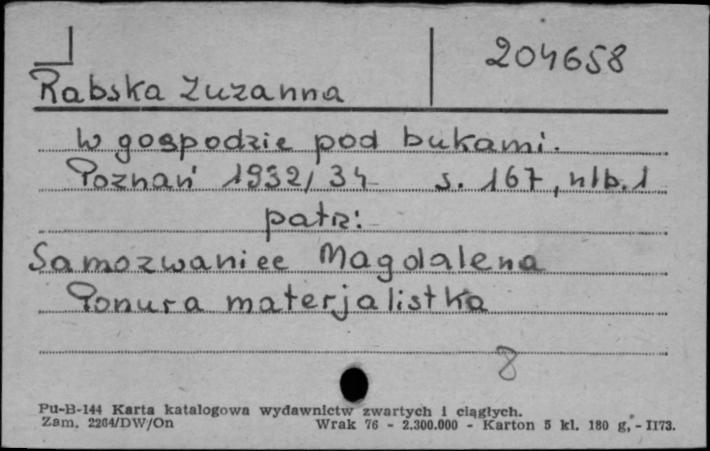 204658
Rabska Zuzanna
W gospodzie pod bukami.
Poznań 1932/34 s. 167, nlb. 1
patrz:
Samozwaniec Magdalena
Ponura materjalistka
8
Pu-B-144 Karta katalogowa wydawnictw zwartych i ciągłych.
Zam. 2264/DW/On Wrak 76 - 2.300.000 - Karton 5 kl. 180 g, - II73.